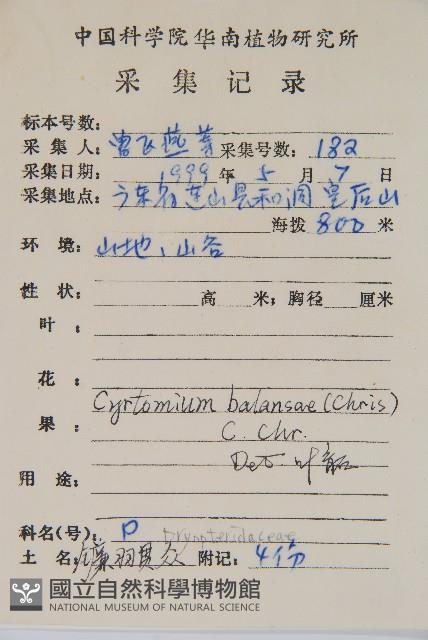 中国科学院华南植物研究所
采集记录
标本号数:
采集人: 曾飞燕等 采集号数: 182
采集日期: 1999年 5月 7日
采集地点: 广东省连山县和洞皇后山
海拨 800 米
环境: 山地、山谷
性状: 高 米; 胸径 厘米
叶:
花
Cyrtomium balansae (Chris)
果: C. Chr.
Det. 叶
用途:
科名(号): P Drypteridaceae
土名: 镰羽贯众 附记: 4份
國立自然科學博物館
NATIONAL MUSEUM OF NATURAL SCIENCE